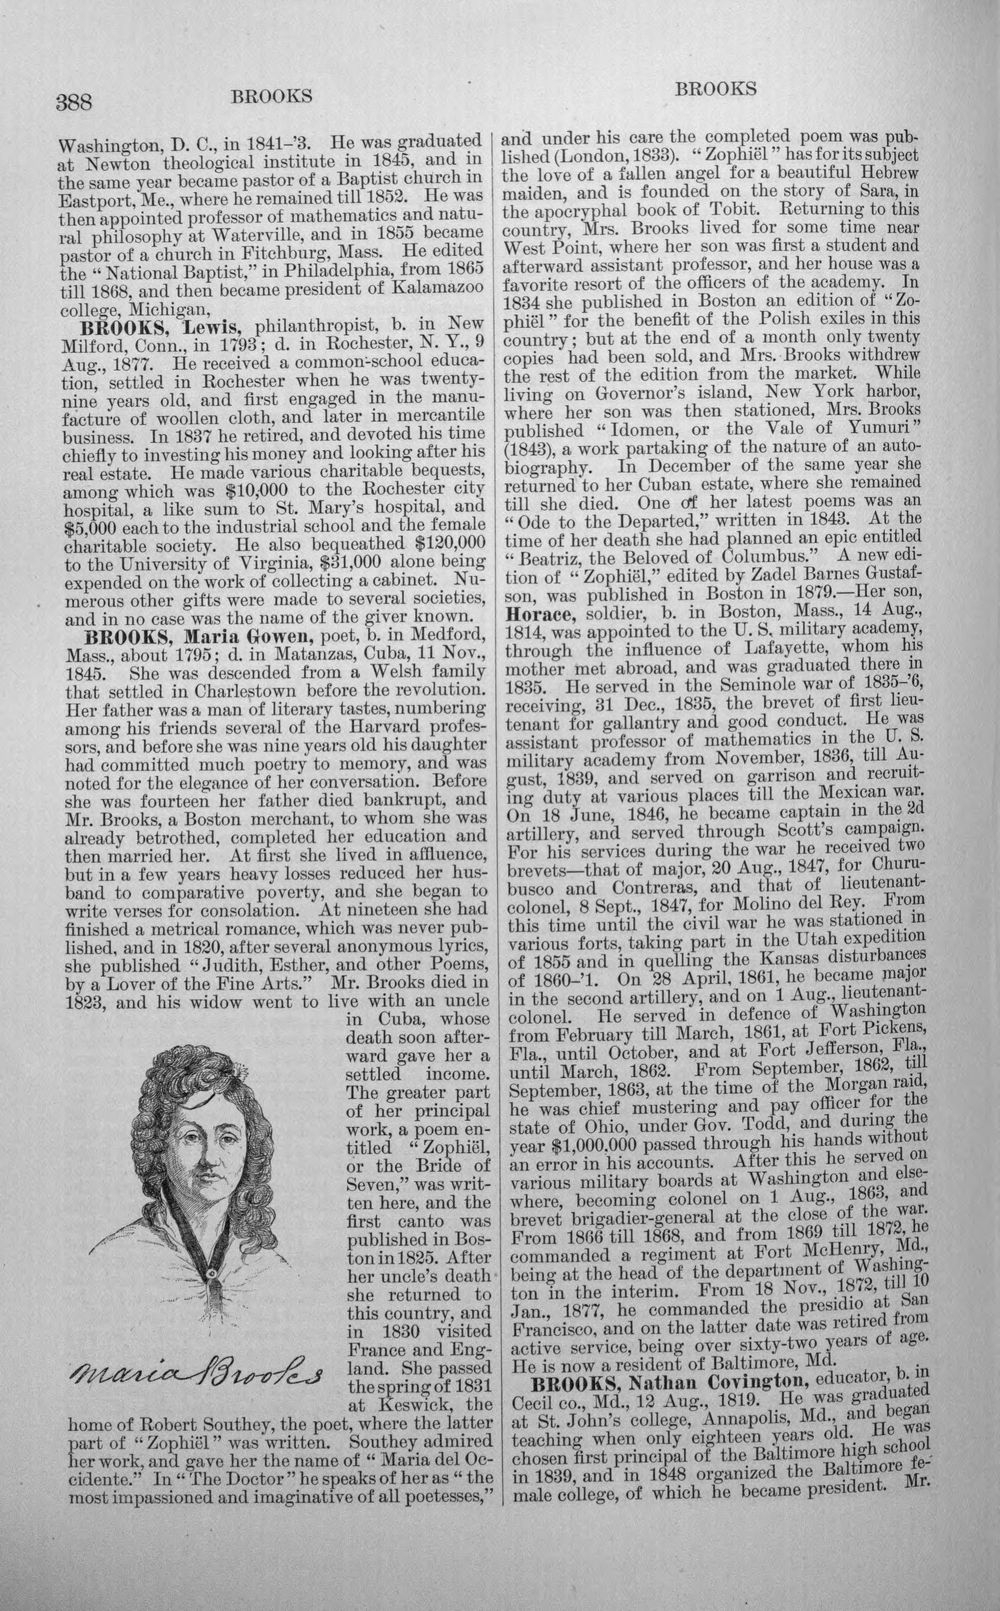 388
BROOKS
BROOKS
Washington, D. C., in 1841-'3. He was graduated
at Newton theological institute in 1845, and in
the same year became pastor of a Baptist church in
Eastport, Me., where he remained till 1852. He was
then appointed professor of mathematics and natu-
ral philosophy at Waterville, and in 1855 became
pastor of a church in Fitchburg, Mass. He edited
the “ National Baptist,” in Philadelphia, from 1865
till 1868, and then became president of Kalamazoo
college, Michigan,
BROOKS, Lewis, philanthropist, b. in New
Milford, Conn., in 1793; d. in Rochester, N. Y., 9
Aug., 1877. He received a common-school educa-
tion, settled in Rochester when he was twenty-
nine years old, and first engaged in the manu-
facture of woollen cloth, and later in mercantile
business. In 1837 he retired, and devoted his time
chiefly to investing his money and looking after his
real estate. He made various charitable bequests,
among which was $10,000 to the Rochester city
hospital, a like sum to St. Mary's hospital, and
$5,000 each to the industrial school and the female
charitable society. He also bequeathed $120,000
to the University of Virginia, $31,000 alone being
expended on the work of collecting a cabinet. Nu-
merous other gifts were made to several societies,
and in no case was the name of the giver known.
BROOKS, Maria Gowen, poet, b. in Medford,
Mass., about 1795; d. in Matanzas, Cuba, 11 Nov.,
1845. She was descended from a Welsh family
that settled in Charlestown before the revolution.
Her father was a man of literary tastes, numbering
among his friends several of the Harvard profes-
sors, and before she was nine years old his daughter
had committed much poetry to memory, and was
noted for the elegance of her conversation. Before
she was fourteen her father died bankrupt, and
Mr. Brooks, a Boston merchant, to whom she was
already betrothed, completed her education and
then married her. At first she lived in affluence,
but in a few years heavy losses reduced her hus-
band to comparative poverty, and she began to
write verses for consolation. At nineteen she had
finished a metrical romance, which was never pub-
lished, and in 1820, after several anonymous lyrics,
she published “Judith, Esther, and other Poems,
by a Lover of the Fine Arts.” Mr. Brooks died in
1823, and his widow went to live with an uncle
in Cuba, whose
death soon after-
ward gave her a
settled income.
The greater part
of her principal
work, a poem en-
titled “ Zophiël,
or the Bride of
Seven,” was writ-
ten here, and the
first canto was
published in Bos-
ton in 1825. After
her uncle's death
she returned to
this country, and
in 1830 visited
France and Eng-
land. She passed
the spring of 1831
at Keswick, the
Maria Brooks
home of Robert Southey, the poet, where the latter
part of “ Zophiël ” was written. Southey admired
her work, and gave her the name of “ Maria del Oc-
cidente.” In “ The Doctor ” he speaks of her as “ the
most impassioned and imaginative of all poetesses,”
and under his care the completed poem was pub-
lished (London, 1833). “ Zophiël ” has for its subject
the love of a fallen angel for a beautiful Hebrew
maiden, and is founded on the story of Sara, in
the apocryphal book of Tobit. Returning to this
country, Mrs. Brooks lived for some time near
West Point, where her son was first a student and
afterward assistant professor, and her house was a
favorite resort of the officers of the academy. In
1834 she published in Boston an edition of “ Zo-
phiël ” for the benefit of the Polish exiles in this
country; but at the end of a month only twenty
copies had been sold, and Mrs. Brooks withdrew
the rest of the edition from the market. While
living on Governor's island, New York harbor,
where her son was then stationed, Mrs. Brooks
published “ Idomen, or the Vale of Yumuri ”
(1843), a work partaking of the nature of an auto-
biography. In December of the same year she
returned to her Cuban estate, where she remained
till she died. One of her latest poems was an
“ Ode to the Departed,” written in 1843. At the
time of her death she had planned an epic entitled
“ Beatriz, the Beloved of Columbus.” A new edi-
tion of “ Zophiël,” edited by Zadel Barnes Gustaf-
son, was published in Boston in 1879.—Her son,
Horace, soldier, b. in Boston, Mass., 14 Aug.,
1814, was appointed to the U. S. military academy,
through the influence of Lafayette, whom his
mother met abroad, and was graduated there in
1835. He served in the Seminole war of 1835-'6,
receiving, 31 Dec., 1835, the brevet of first lieu-
tenant for gallantry and good conduct. He was
assistant professor of mathematics in the U. S.
military academy from November, 1836, till Au-
gust, 1839, and served on garrison and recruit-
ing duty at various places till the Mexican war.
On 18 June, 1846, he became captain in the 2d
artillery, and served through Scott's campaign.
For his services during the war he received two
brevets—that of major, 20 Aug., 1847, for Churu-
busco and Contreras, and that of lieutenant-
colonel, 8 Sept., 1847, for Molino del Rey. From
this time until the civil war he was stationed in
various forts, taking part in the Utah expedition
of 1855 and in quelling the Kansas disturbances
of 1860-'1. On 28 April, 1861, he became major
in the second artillery, and on 1 Aug., lieutenant-
colonel. He served in defence of Washington
from February till March, 1861, at Fort Pickens,
Fla., until October, and at Fort Jefferson, Fla.,
until March, 1862. From September, 1862, till
September, 1863, at the time of the Morgan raid,
he was chief mustering and pay officer for the
state of Ohio, under Gov. Todd, and during the
year $1,000,000 passed through his hands without
an error in his accounts. After this he served on
various military boards at Washington and else-
where, becoming colonel on 1 Aug., 1863, and
brevet brigadier-general at the close of the war.
From 1866 till 1868, and from 1869 till 1872, he
commanded a regiment at Fort McHenry, Md.,
being at the head of the department of Washing-
ton in the interim. From 18 Nov., 1872, till 10
Jan., 1877, he commanded the presidio at San
Francisco, and on the latter date was retired from
active service, being over sixty-two years of age.
He is now a resident of Baltimore, Md.
BROOKS, Nathan Covington, educator, b. in
Cecil co., Md., 12 Aug., 1819. He was graduated
at St. John's college, Annapolis, Md., and began
teaching when only eighteen years old. He was
chosen first principal of the Baltimore high school
in 1839, and in 1848 organized the Baltimore fe-
male college, of which he became president. Mr.